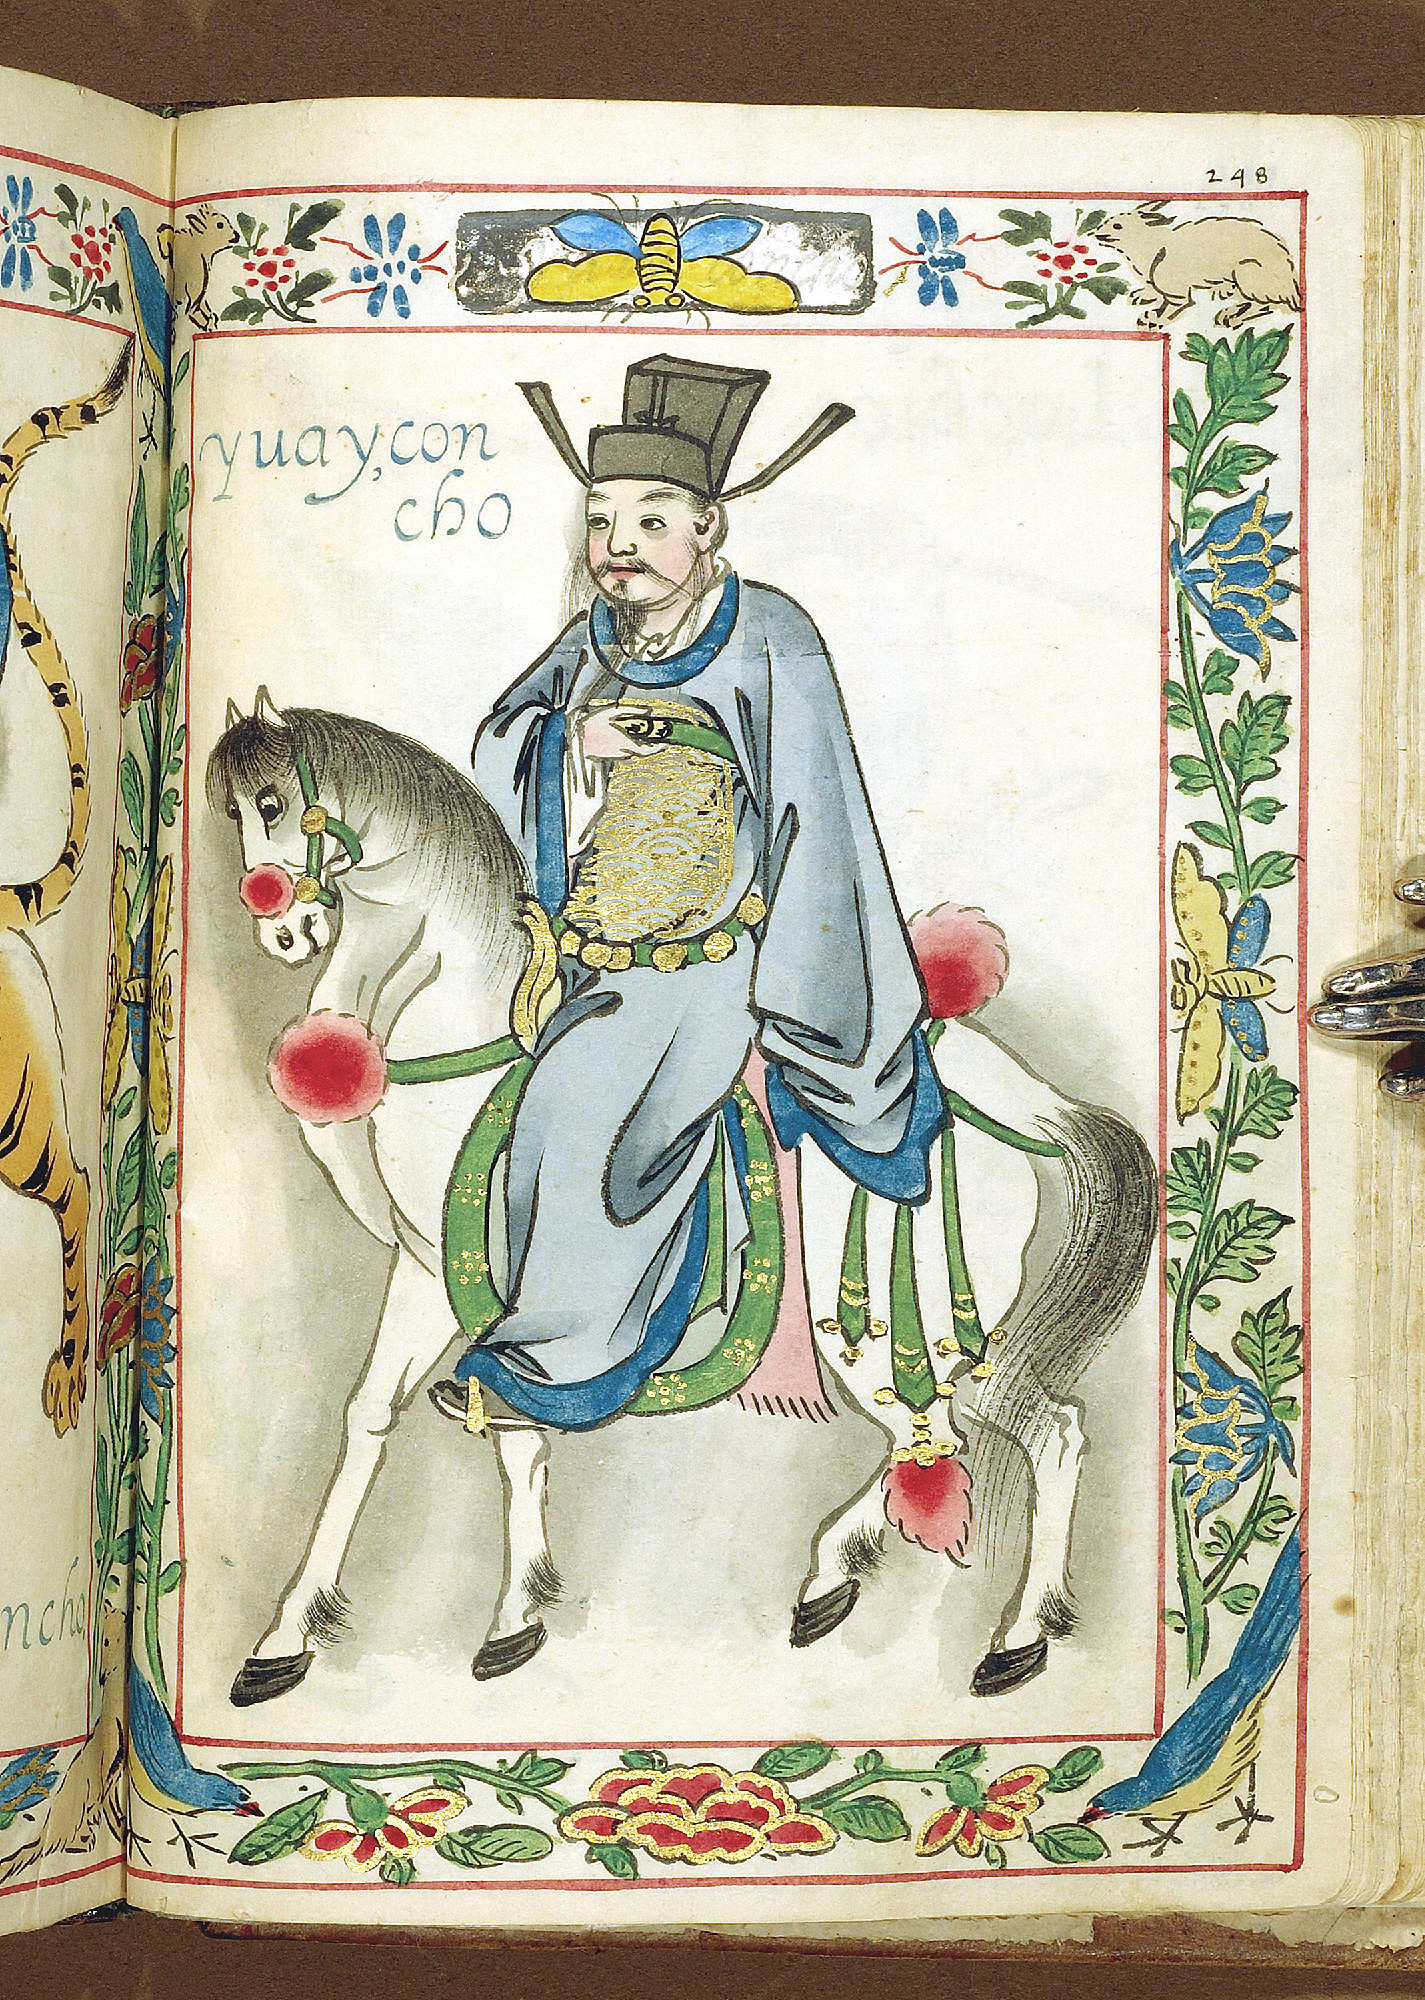 248
yuay,con
cho
ncho,